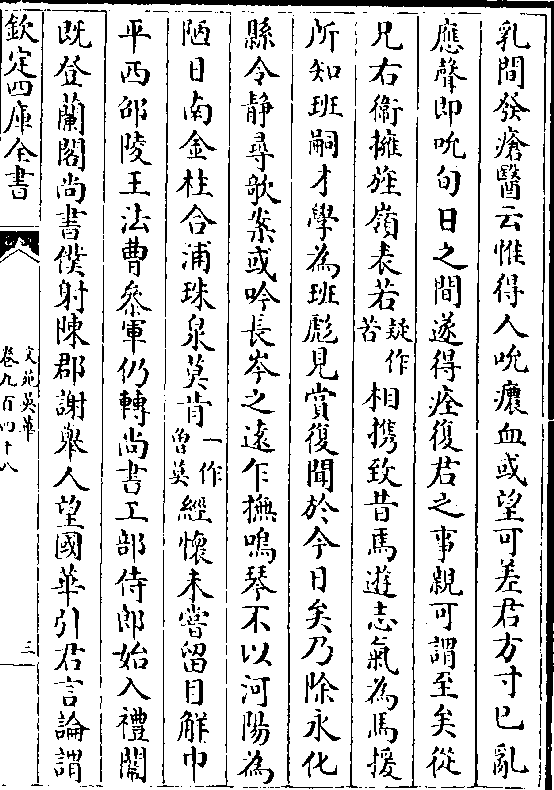 乳間發瘡醫云惟得人吮膿血或望可差君方寸已亂
應聲即吮旬日之間遂得痊復君之事親可謂至矣從
兄右衞擁旌嶺表若疑作苦相携致昔馬遊志氣為馬援
所知班嗣才學為班彪見賞復聞於今日矣乃除永化
縣令靜尋歌案或吟長岑之遠乍撫鳴琴不以河陽為
陋日南金柱合浦珠泉莫肯一作曾莫經懷未嘗留目解巾
平西邵陵王法曹叅軍仍轉尚書工部侍郎始入禮闈
既登蘭閣尚書僕射陳郡謝舉人望國華引君言論謂
欽定四庫全書
文苑英華
卷九百四十八
三